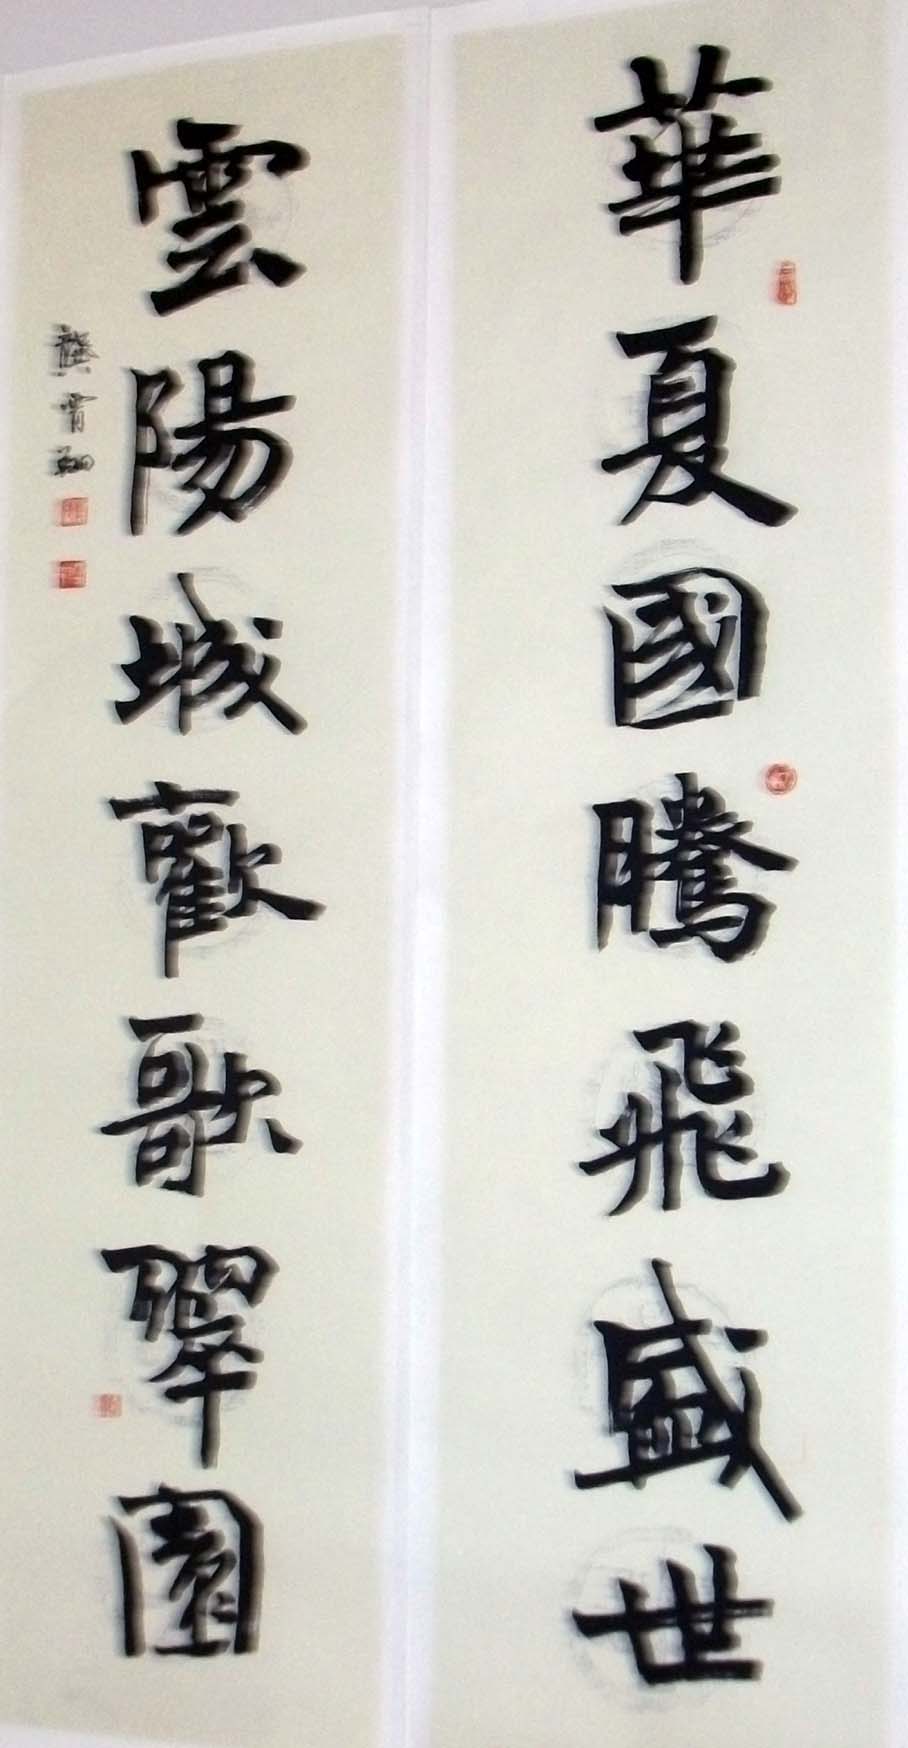 華夏國騰飛盛世
雲陽城歡歌翠園
龔